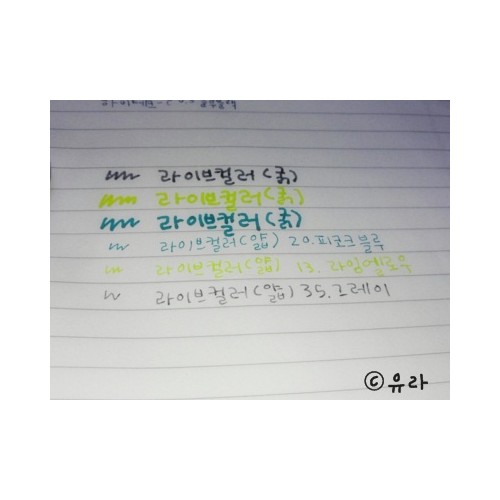 라이브컬러(굵)
라이브컬러(굵)
라이브컬러(굵)
라이브컬러(얇) 20.피코크블루
라이브컬러(얇) 13. 라임옐로우
라이브컬러(얇) 35.그레이
©유라